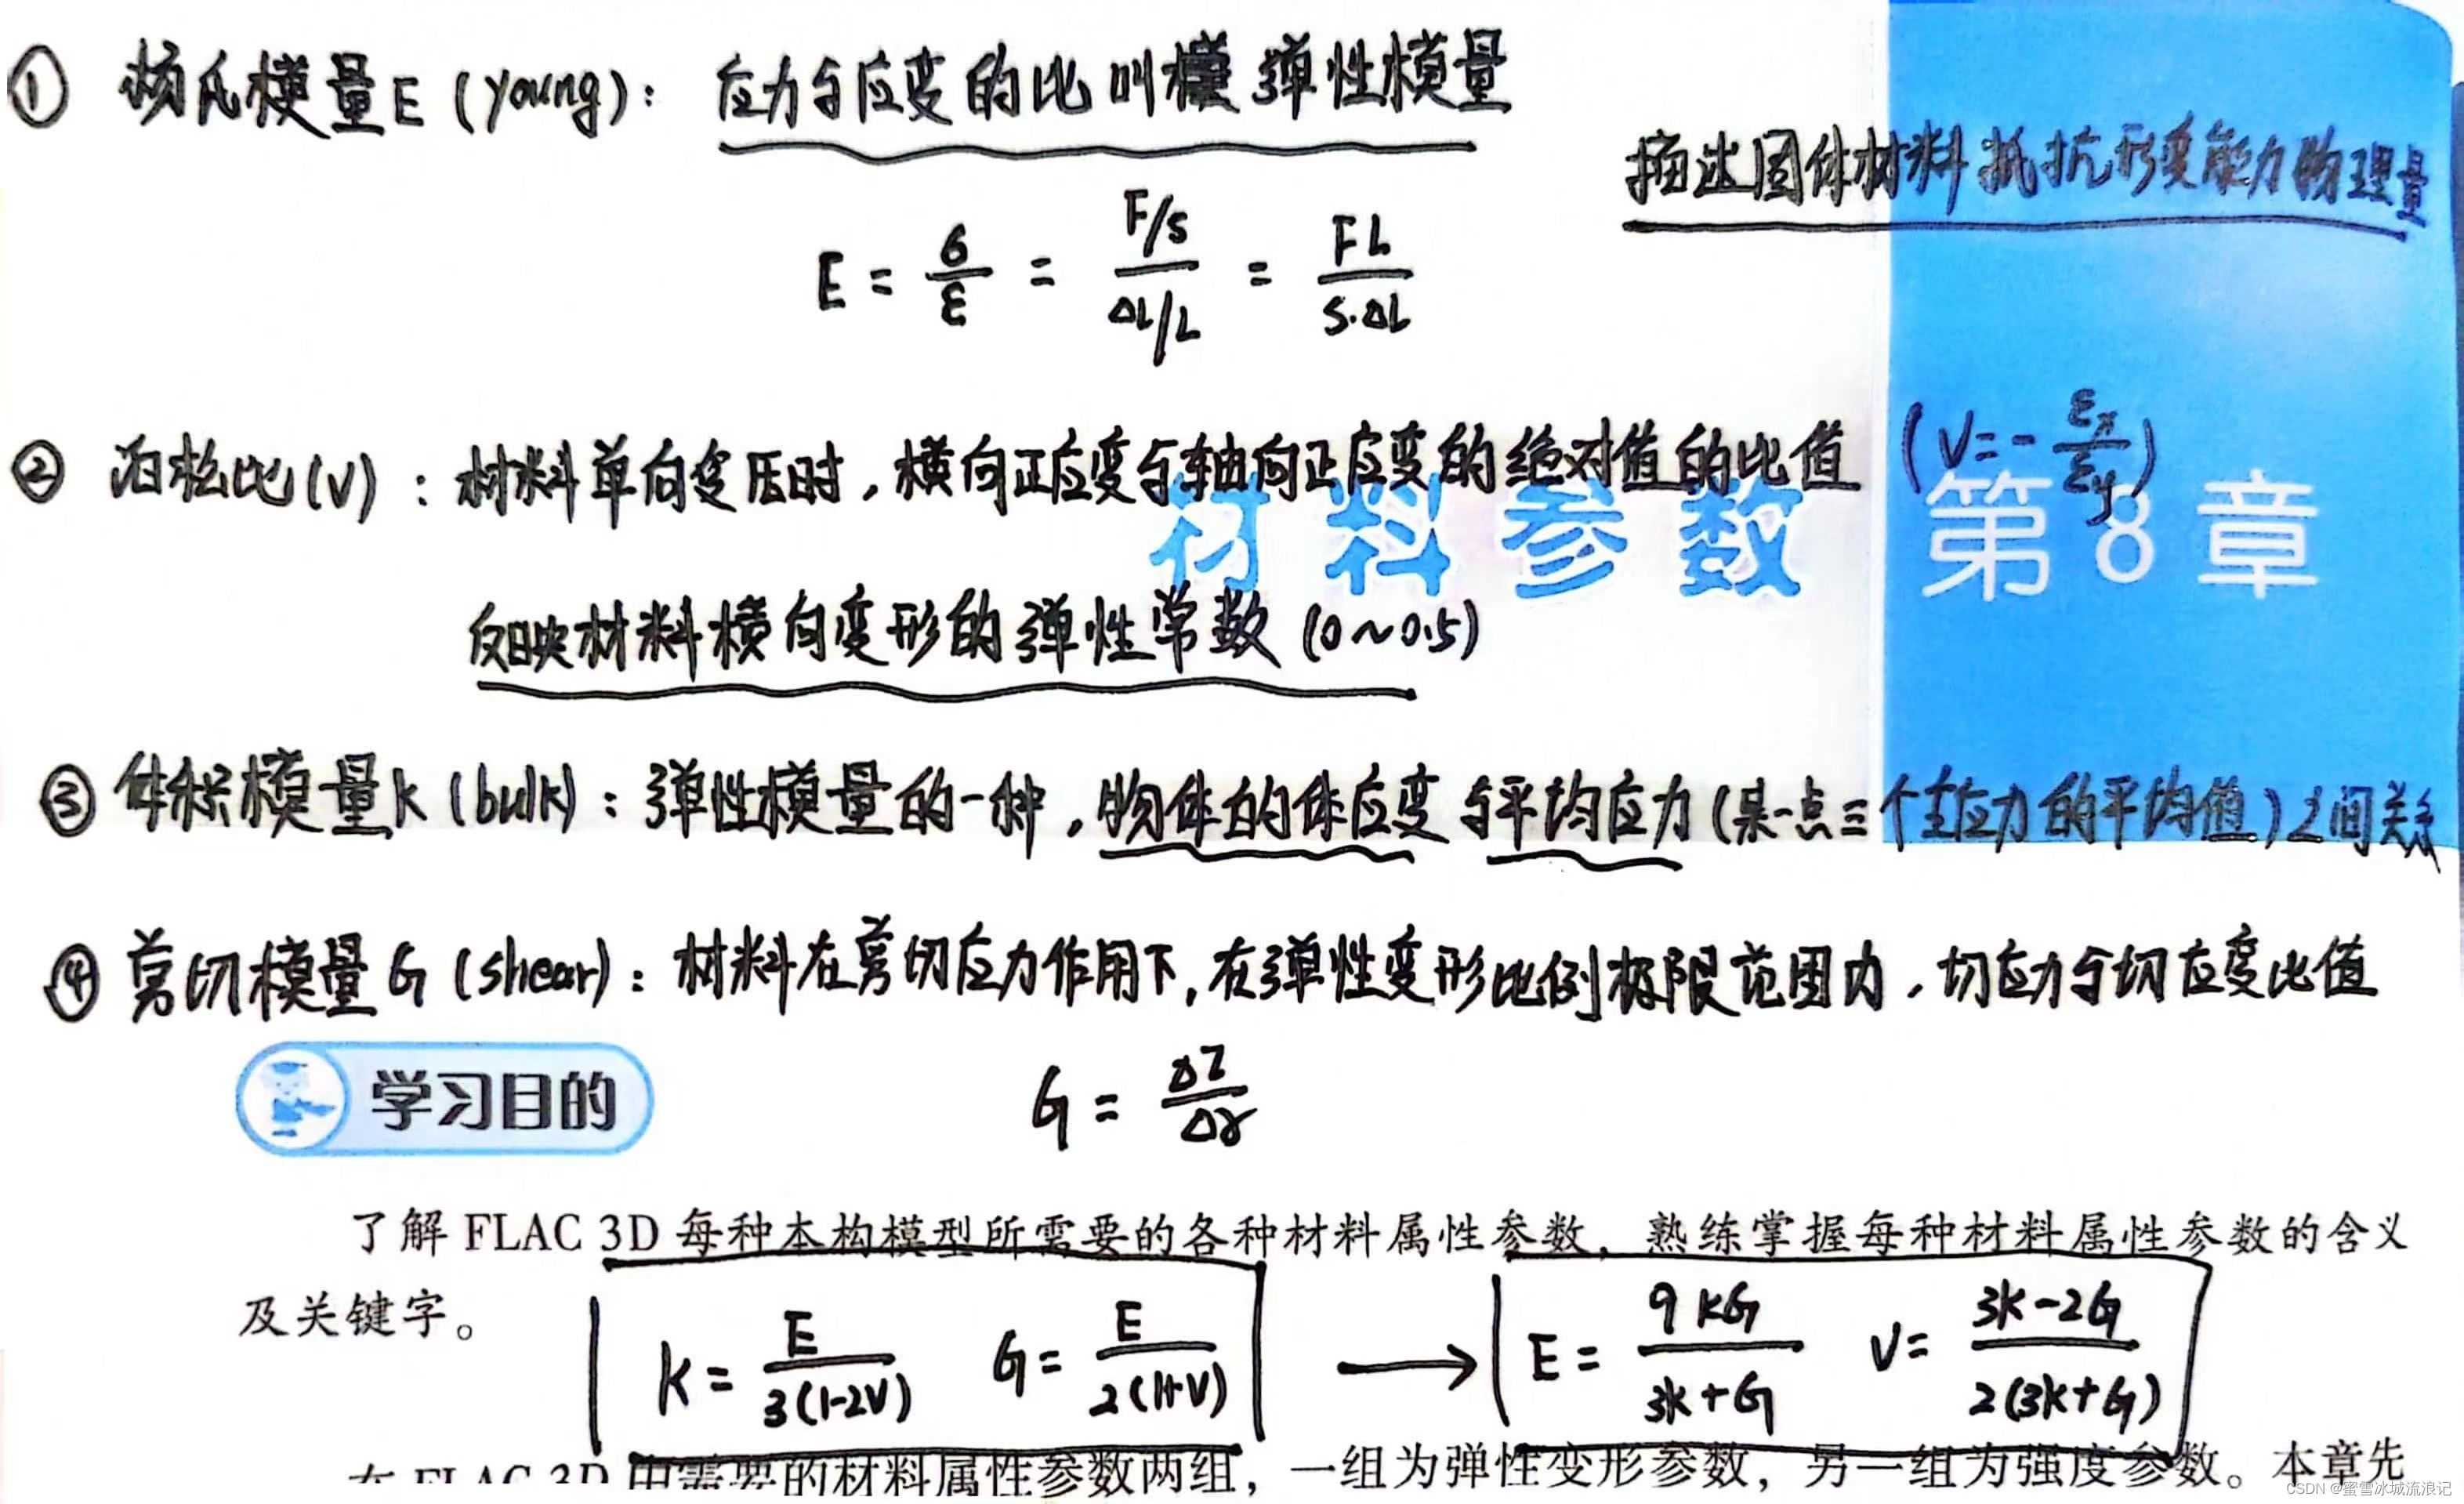 ① 杨氏模量E (young): 应力与应变的比叫 弹性模量
描述固体材料抵抗形变能力物理量
E = σ/ε = (F/S)/(ΔL/L) = FL/(S·ΔL)
② 泊松比(V): 材料单向受压时,横向正应变与轴向正应变的绝对值的比值 (V=-εx/εy)
材料参数 第8章
反映材料横向变形的弹性常数 (0~0.5)
③ 体积模量K (bulk): 弹性模量的一种,物体的体应变与平均应力(某一点三个主应力的平均值)之间关系
④ 剪切模量G (shear): 材料在剪切应力作用下,在弹性变形比例极限范围内,切应力与切应变比值
学习目的
G = Δτ/Δγ
了解 FLAC 3D 每种本构模型所需要的各种材料属性参数,熟练掌握每种材料属性参数的含义
及关键字。
K = E/3(1-2V) G = E/2(1+V) → E = 9KG/3K+G V = 3K-2G/2(3K+G)
在 FLAC 3D 中需要的材料属性参数两组,一组为弹性变形参数,另一组为强度参数。本章先
CSDN @蜜雪冰城流浪记